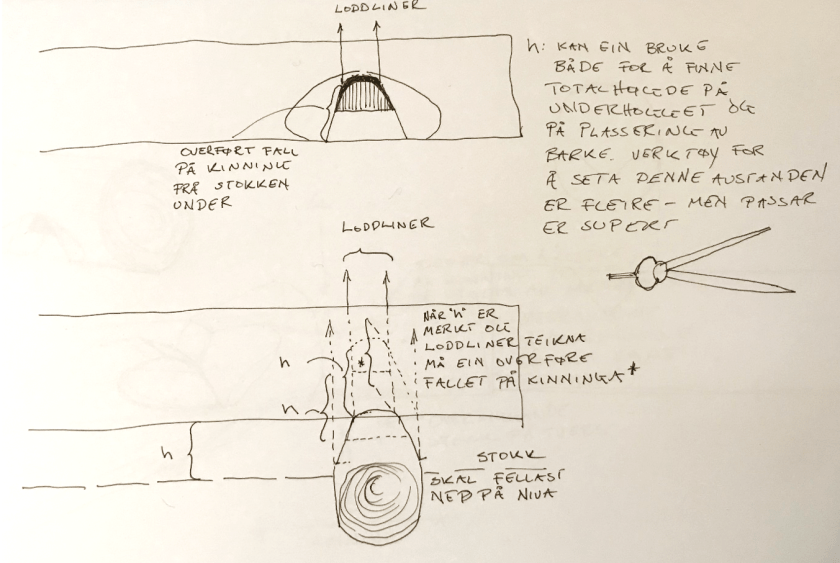 LODDLINER
h: KAN EIN BRUKE
BÅDE FOR Å FINNE
TOTALHØGDE PÅ
UNDERHOGGET OG
PÅ PLASSERING AV
BARKE. VERKTØY FOR
Å SETA DENNE AVSTANDEN
ER FLEIRE – MEN PASSAR
ER SUPERT
OVERFØRT FALL
PÅ KINNING
FRÅ STOKKEN
UNDER
LODDLINER
NÅR "h" ER
MERKT OG
LODDLINER TEIKNA
MÅ EIN OVERFØRE
FALLET PÅ KINNINGA*
h
*
h
h
STOKK
SKAL FELLAST
NED PÅ NIVÅ